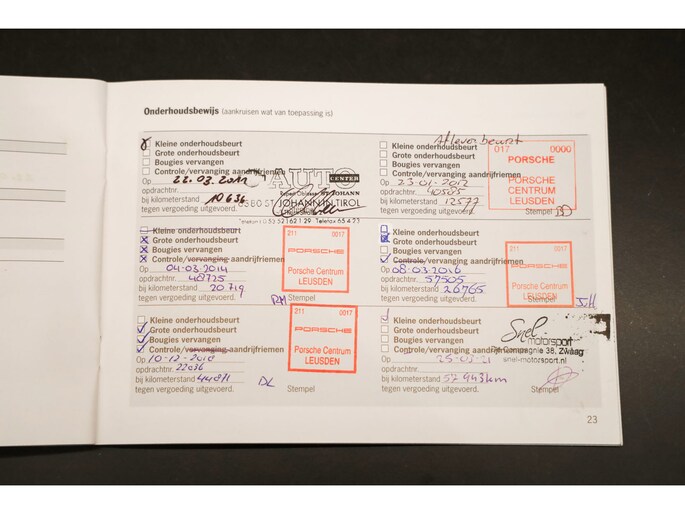 Onderhoudsbewijs (aankruisen wat van toepassing is)
Kleine onderhoudsbeurt
Grote onderhoudsbeurt
Bougies vervangen
Controle/vervanging aandrijfriemen
Op 22.03.2011
opdrachtnr.
bij kilometerstand 10636
tegen vergoeding uitgevoerd.
AUTO CENTER
ST. JOHANN
6380 ST. JOHANN IN TIROL
Telefax 65 4 23
Afleverbeurt
Kleine onderhoudsbeurt
Grote onderhoudsbeurt
Bougies vervangen
Controle/vervanging aandrijfriemen
Op 23-01-2012
opdrachtnr. 40505
bij kilometerstand 12577
tegen vergoeding uitgevoerd.
Stempel
017 0000
PORSCHE
PORSCHE
CENTRUM
LEUSDEN
Kleine onderhoudsbeurt
Grote onderhoudsbeurt
Bougies vervangen
Controle/vervanging aandrijfriemen
Op 04-03-2014
opdrachtnr. 48725
bij kilometerstand 20719
tegen vergoeding uitgevoerd.
Stempel
211 0017
PORSCHE
Porsche Centrum
LEUSDEN
Kleine onderhoudsbeurt
Grote onderhoudsbeurt
Bougies vervangen
Controle/vervanging aandrijfriemen
Op 08-03-2016
opdrachtnr. 57505
bij kilometerstand 26765
tegen vergoeding uitgevoerd.
Stempel
J.H
211 0017
PORSCHE
Porsche Centrum
LEUSDEN
Kleine onderhoudsbeurt
Grote onderhoudsbeurt
Bougies vervangen
Controle/vervanging aandrijfriemen
Op 10-12-2018
opdrachtnr. 22036
bij kilometerstand 44811
tegen vergoeding uitgevoerd.
DL
Stempel
211 0017
PORSCHE
Porsche Centrum
LEUSDEN
Kleine onderhoudsbeurt
Grote onderhoudsbeurt
Bougies vervangen
Controle/vervanging aandrijfriemen
Op 25-02-21
opdrachtnr.
bij kilometerstand 57943km
tegen vergoeding uitgevoerd.
Stempel
Snel
motorsport
De Compagnie 38, Zwaag
snel-motorsport.nl
23